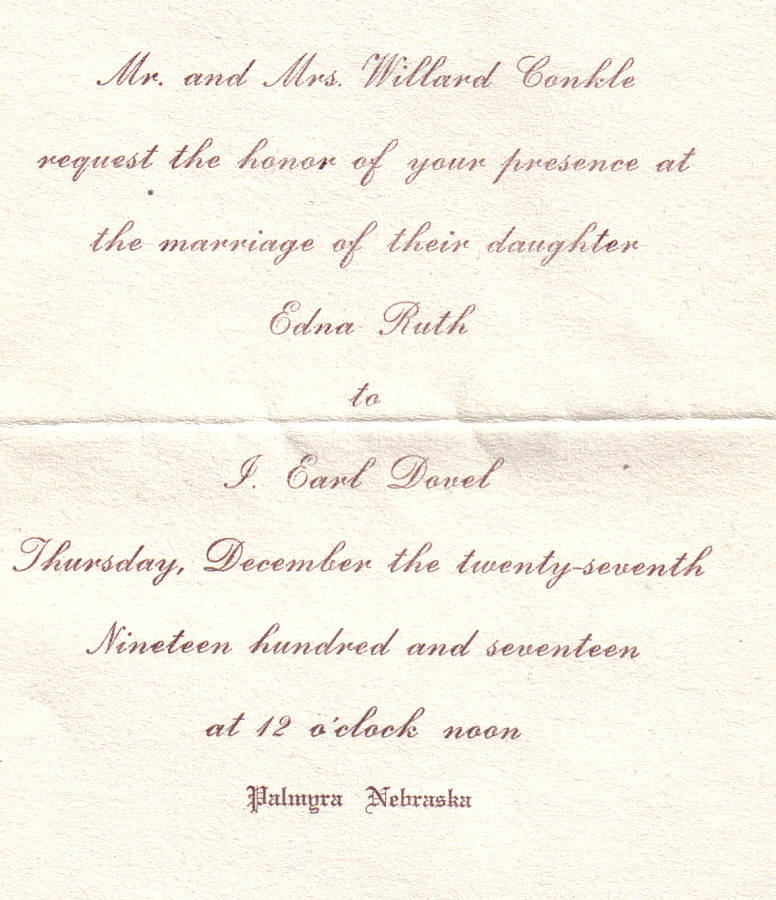 Mr. and Mrs. Willard Conkle
request the honor of your presence at
the marriage of their daughter
Edna Ruth
to
I. Earl Dovel
Thursday, December the twenty-seventh
Nineteen hundred and seventeen
at 12 o'clock noon
Palmyra Nebraska